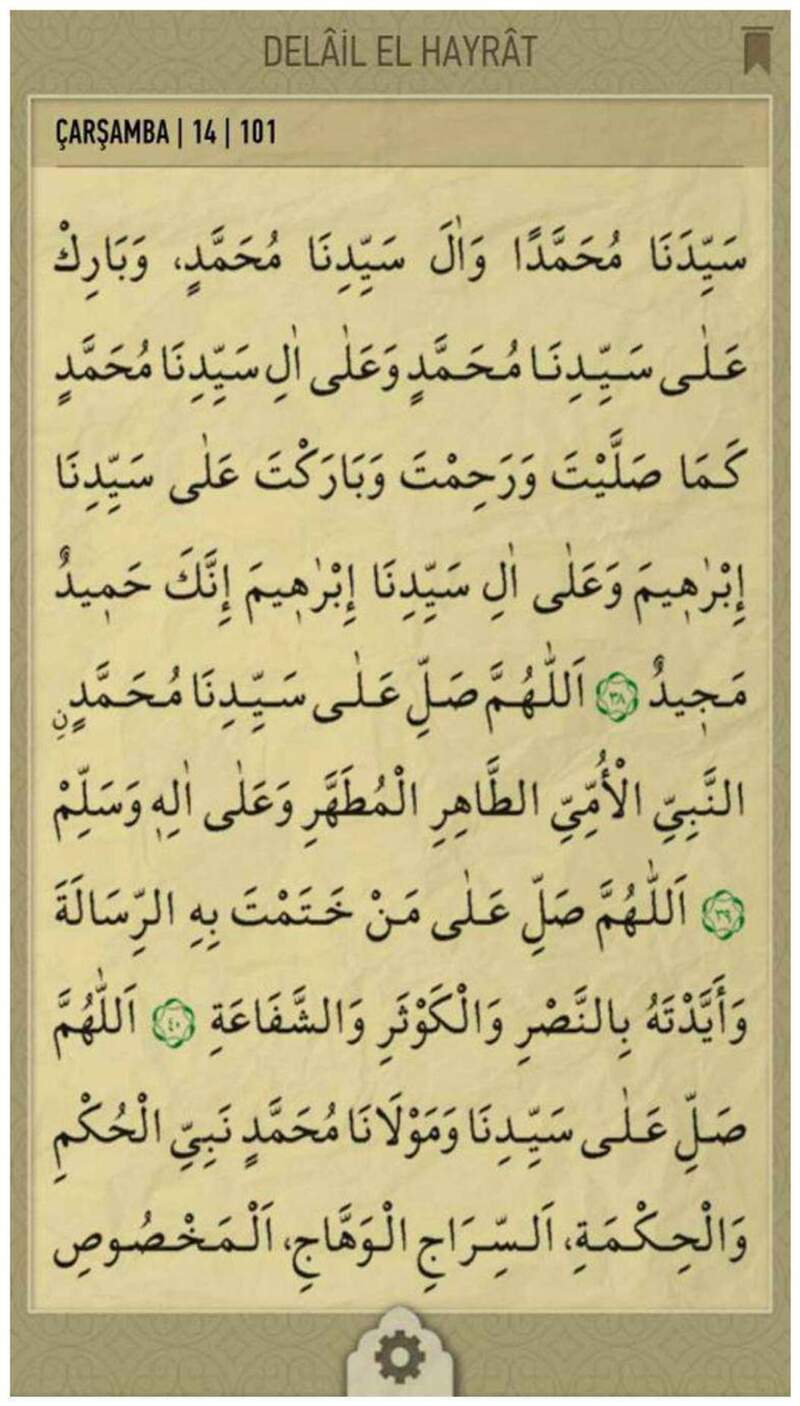 DELÂİL EL HAYRÂT
ÇARŞAMBA | 14 | 101
سَيِّدَنَا مُحَمَّدًا وَاٰلَ سَيِّدِنَا مُحَمَّدٍ، وَبَارِكْ
عَلٰى سَيِّدِنَا مُحَمَّدٍ وَعَلٰى اٰلِ سَيِّدِنَا مُحَمَّدٍ
كَمَا صَلَّيْتَ وَرَحِمْتَ وَبَارَكْتَ عَلٰى سَيِّدِنَا
إِبْرٰهٖيمَ وَعَلٰى اٰلِ سَيِّدِنَا إِبْرٰهٖيمَ إِنَّكَ حَمٖيدٌ
مَجٖيدٌ ﴿٣٨﴾ اَللّٰهُمَّ صَلِّ عَلٰى سَيِّدِنَا مُحَمَّدٍنِ
النَّبِيِّ الْأُمِّيِّ الطَّاهِرِ الْمُطَهَّرِ وَعَلٰى اٰلِهٖ وَسَلِّمْ
﴿٣٩﴾ اَللّٰهُمَّ صَلِّ عَلٰى مَنْ خَتَمْتَ بِهِ الرِّسَالَةَ
وَأَيَّدْتَهُ بِالنَّصْرِ وَالْكَوْثَرِ وَالشَّفَاعَةِ ﴿٤٠﴾ اَللّٰهُمَّ
صَلِّ عَلٰى سَيِّدِنَا وَمَوْلَانَا مُحَمَّدٍ نَبِيِّ الْحُكْمِ
وَالْحِكْمَةِ، اَلسِّرَاجِ الْوَهَّاجِ، اَلْمَخْصُوصِ